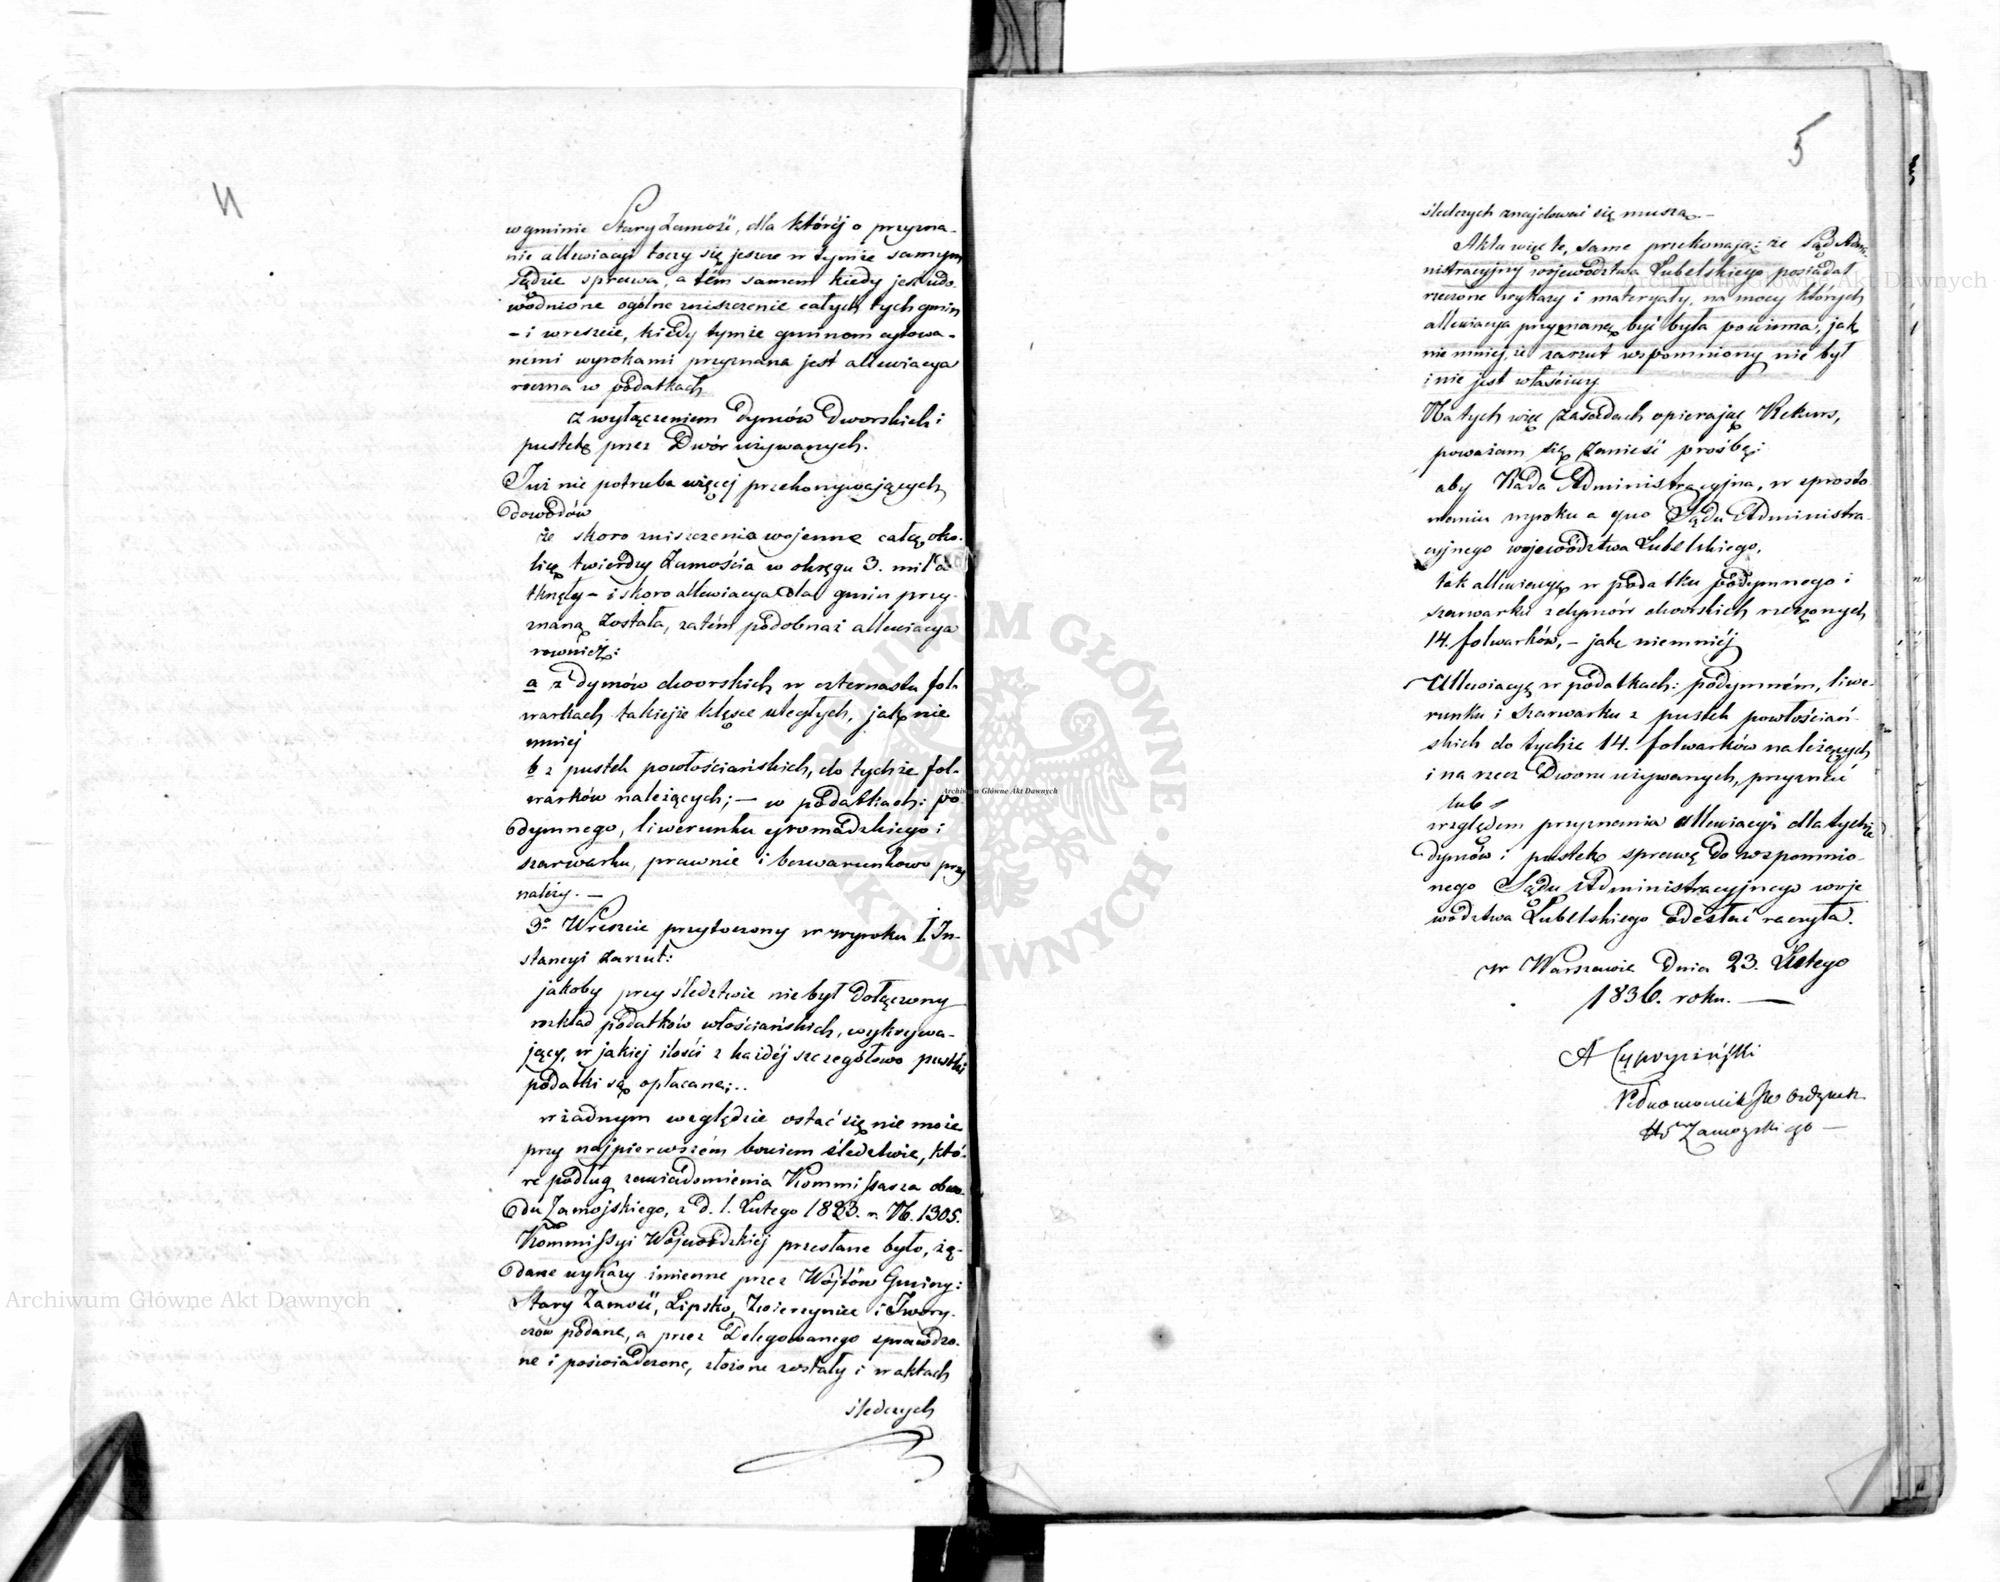 4
w gminie Stary Zamość, dla któréj o przyzna-
nie allewiacyi toczy się jeszcze w tymże samym
Sądzie sprawa, a tém samem kiedy jest udo-
wodnione ogólne zniszczenie całych tych gmin
- i wreszcie, kiedy tymże gminom cytowa-
nemi wyrokami przyznana jest allewiacya
roczna w podatkach
z wyłączeniem Dymów Dworskich i
pustek przez Dwór używanych.
Już nie potrzeba więcej przekonywających
dowodów
że skoro zniszczenia wojenne całą oko-
licę twierdzy Zamościa w okręgu 3. mil do
tknęły - i skoro allewiacya dla gmin przy-
znaną została, zatém podobnaż allewiacya
rownież:
a z Dymów dworskich w czternastu fol-
warkach takiejże klęsce uległych, jak nie
mniej
b z pustek powłościańskich, do tychże fol-
warków należących; — w podatkach: po-
dymnego, liwerunku gromadzkiego i
szarwarku, prawnie i bezwarunkowo przy
należy. —
3o Wreszcie przytoczony w wyroku I In-
stancyi zarzut:
jakoby przy śledztwie nie był dołączony
rozkład podatków włościańskich, wykrywa-
jący, w jakiej ilości z każdéj szczegółowo pustki
podatki są opłacane;..
w żadnym względzie ostać się nie może
przy najpierwszém bowiem śledztwie, któ-
re podług zawiadomienia Kommissarza obwo-
du Zamojskiego, z d. 1. Lutego 1833. r. N. 1305.
Kommissyi Wojewódzkiej przesłane było, żą-
dane wykazy imienne przez Wójtów Gminy:
Stary Zamość, Lipsko, Zwierzyniec i Twory-
czów podane, a przez Delegowanego sprawdzo-
ne i poświadczone, złożone zostały i w aktach
śledczych
5
śledczych znajdować się muszą. —
Akta więc te, same przekonają: że Sąd Admi-
nistracyjny województwa Lubelskiego posiadał
rzeczone wykazy i materyały, na mocy których
allewiacya przyznaną być była powinna, jak
nie mniej, że zarzut wspomniony nie był
i nie jest właściwy
Na tych więc zasadach opierając Rekurs,
poważam się zanieść prośbę:
aby Rada Administracyjna, w sprosto-
waniu wyroku a quo Sądu Administra-
cyjnego województwa Lubelskiego,
tak allewiacyę w podatku podymnego i
szarwarku z dymów dworskich rzeczonych
14. folwarków, - jak niemniéj
Allewiacyę w podatkach: podymném, liwe-
runku i szarwarku z pustek powłościań-
skich do tychże 14. folwarków należących
i na rzecz Dworu używanych, przyznać
lub
względem przyznania allewiacyi dla tychże
dymów i pustek sprawę do wspomnio-
nego Sądu Administracyjnego woje
wództwa Lubelskiego odesłać raczyła.
w Warszawie Dnia 23. Lutego
1836. roku. —
Pełnomocnik JW Ordynata
Hr Zamoyskiego —
Archiwum Główne Akt Dawnych
Archiwum Główne Akt Dawnych
Archiwum Główne Akt Dawnych
ARCHIWUM GŁÓWNE AKT DAWNYCH